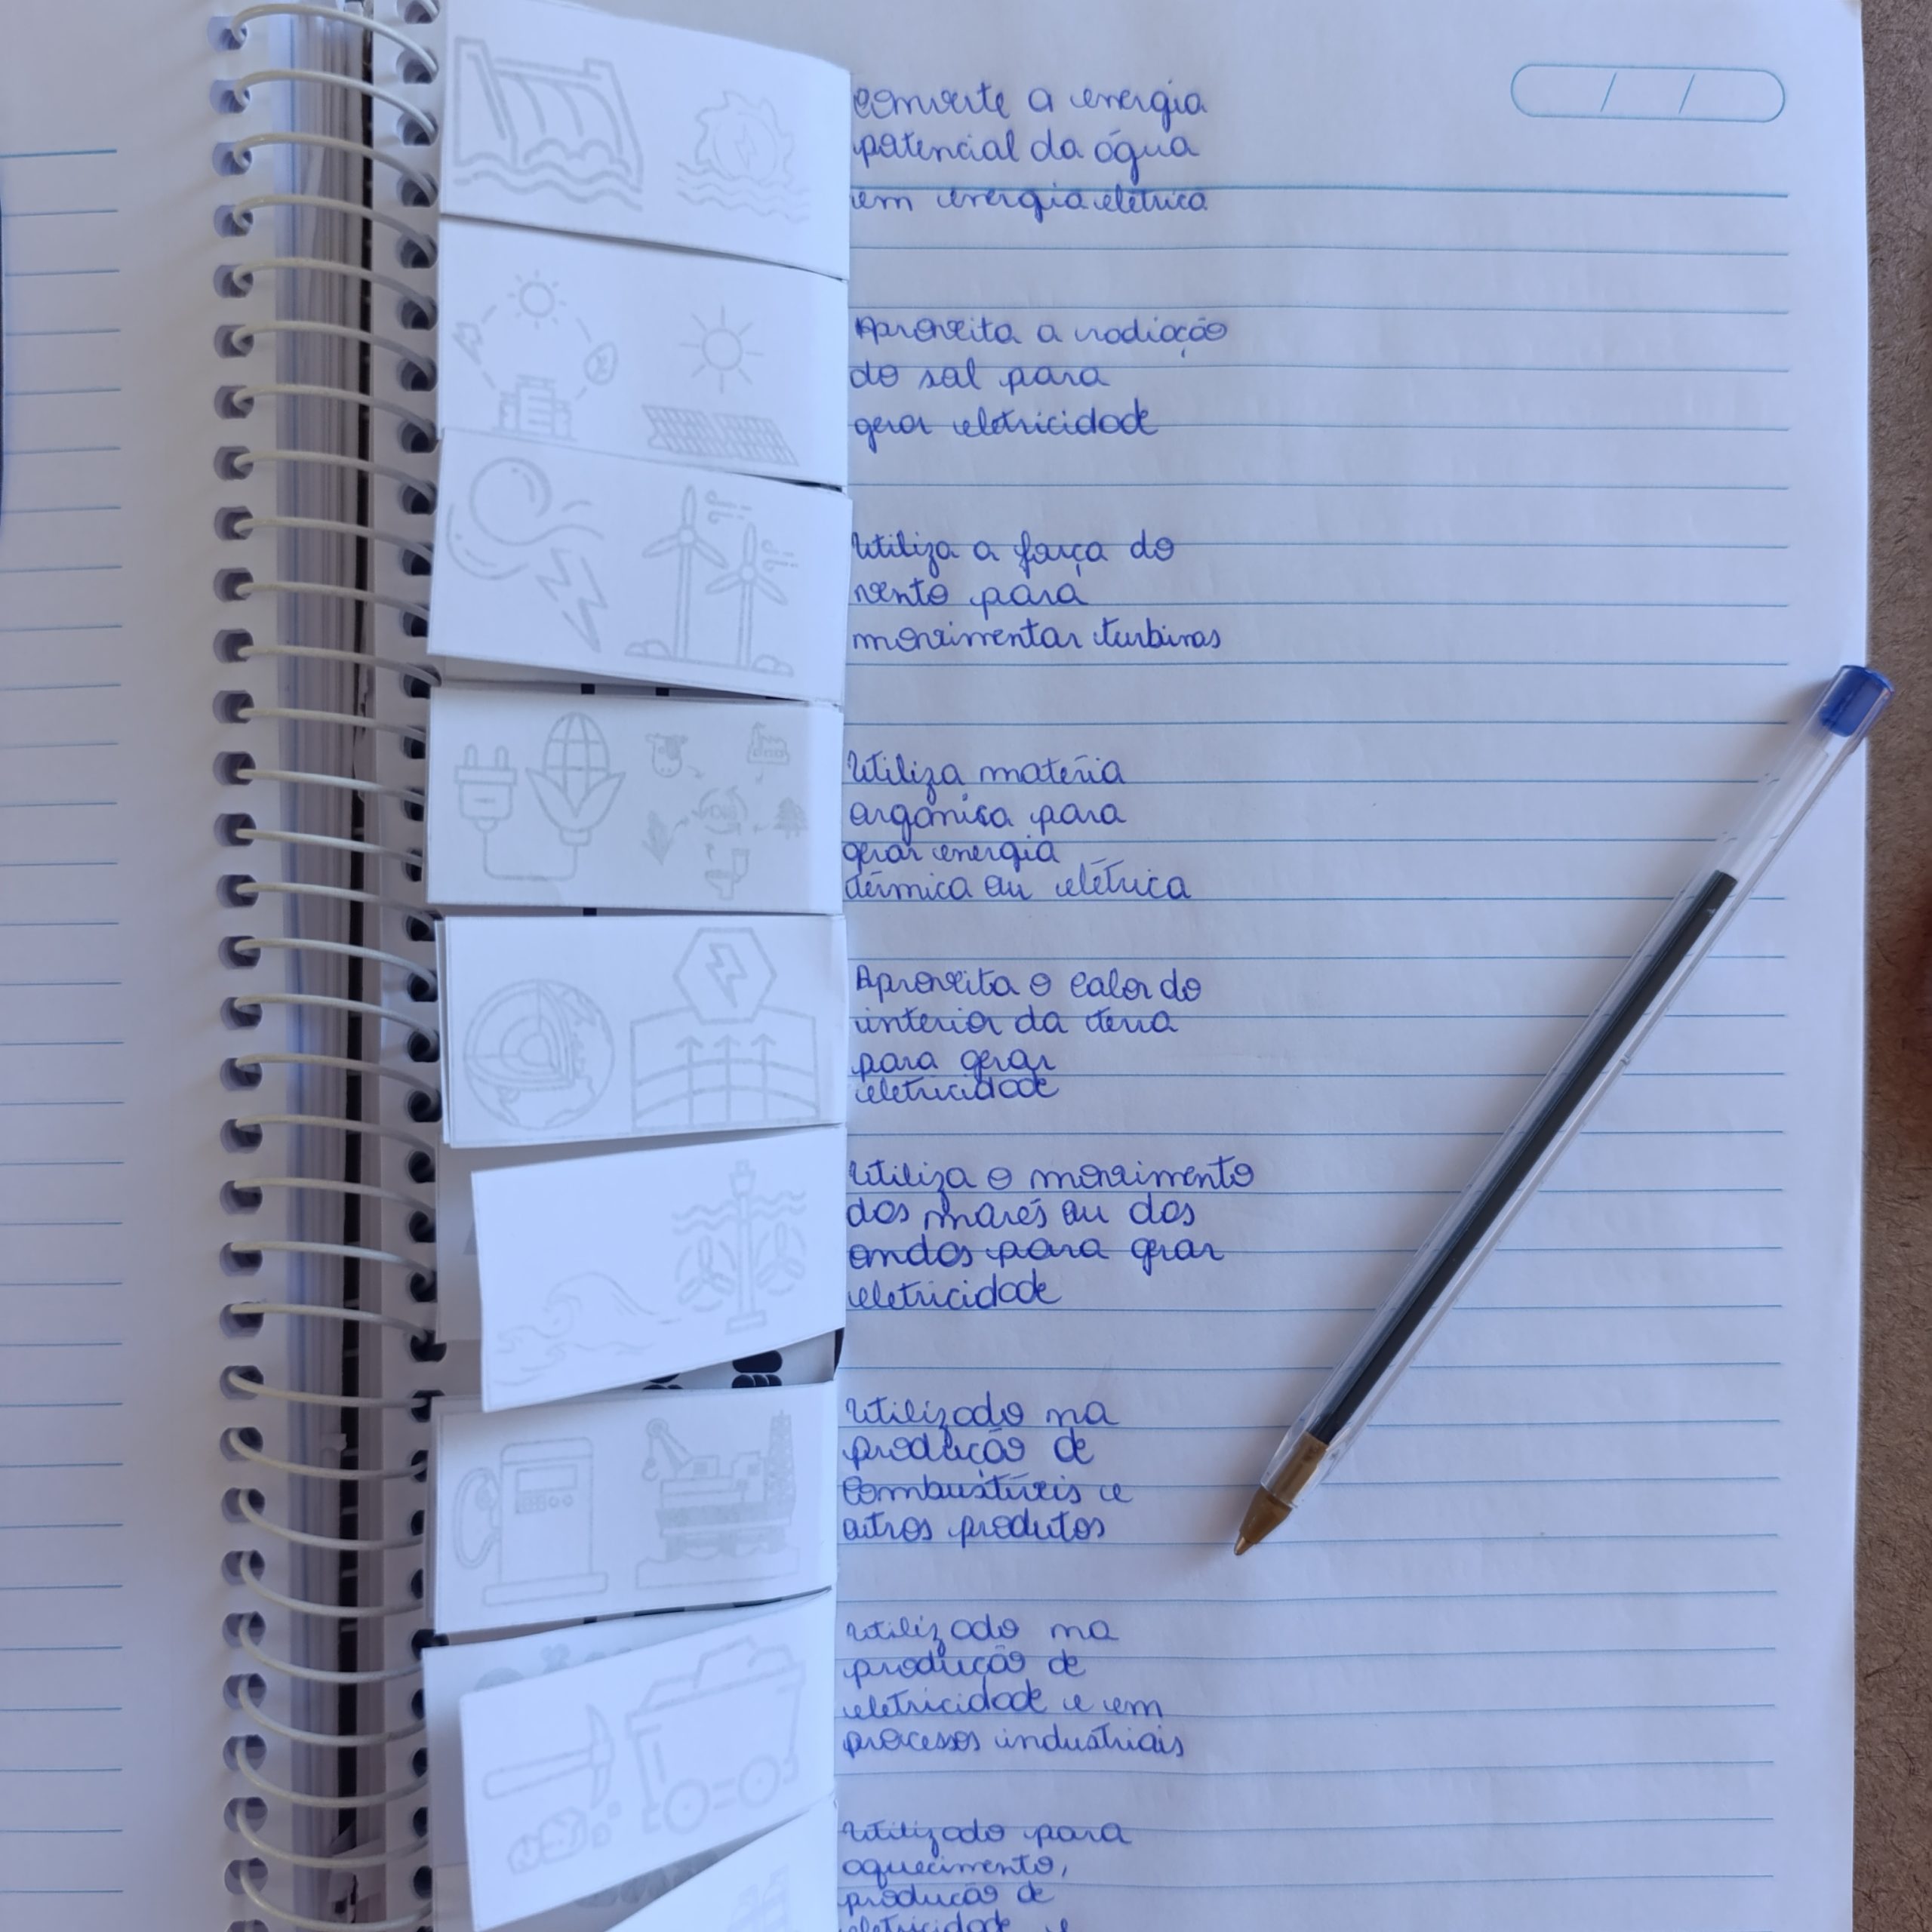 converte a energia
potencial da água
em energia elétrica
Aproveita a radiação
do sol para
gerar eletricidade
Utiliza a força do
vento para
movimentar turbinas
Utiliza matéria
orgânica para
gerar energia
térmica ou elétrica
Aproveita o calor do
interior da terra
para gerar
eletricidade
Utiliza o movimento
das marés ou das
ondas para gerar
eletricidade
Utilizado na
produção de
combustíveis e
outros produtos
Utilizado na
produção de
eletricidade e em
processos industriais
Utilizado para
aquecimento,
produção de
eletricidade e